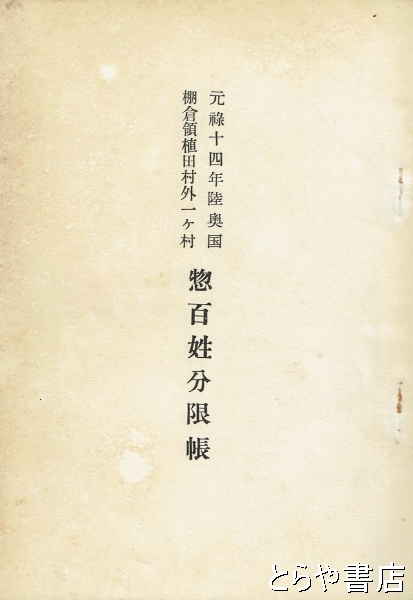 元祿十四年陸奥国
棚倉領植田村外一ヶ村
惣百姓分限帳
とらや書店